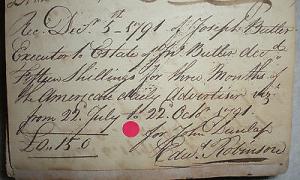 Rec.d Dec.r 5th 1791 of Joseph Butler
Executor to Estate of Jn.o Butler dec.d
Fifteen Shillings for three Months of
the American daily Advertiser viz.t
from 22.d July to 22.d Octo.r 1791
for John Dunlap
£0.15.0
Robinson